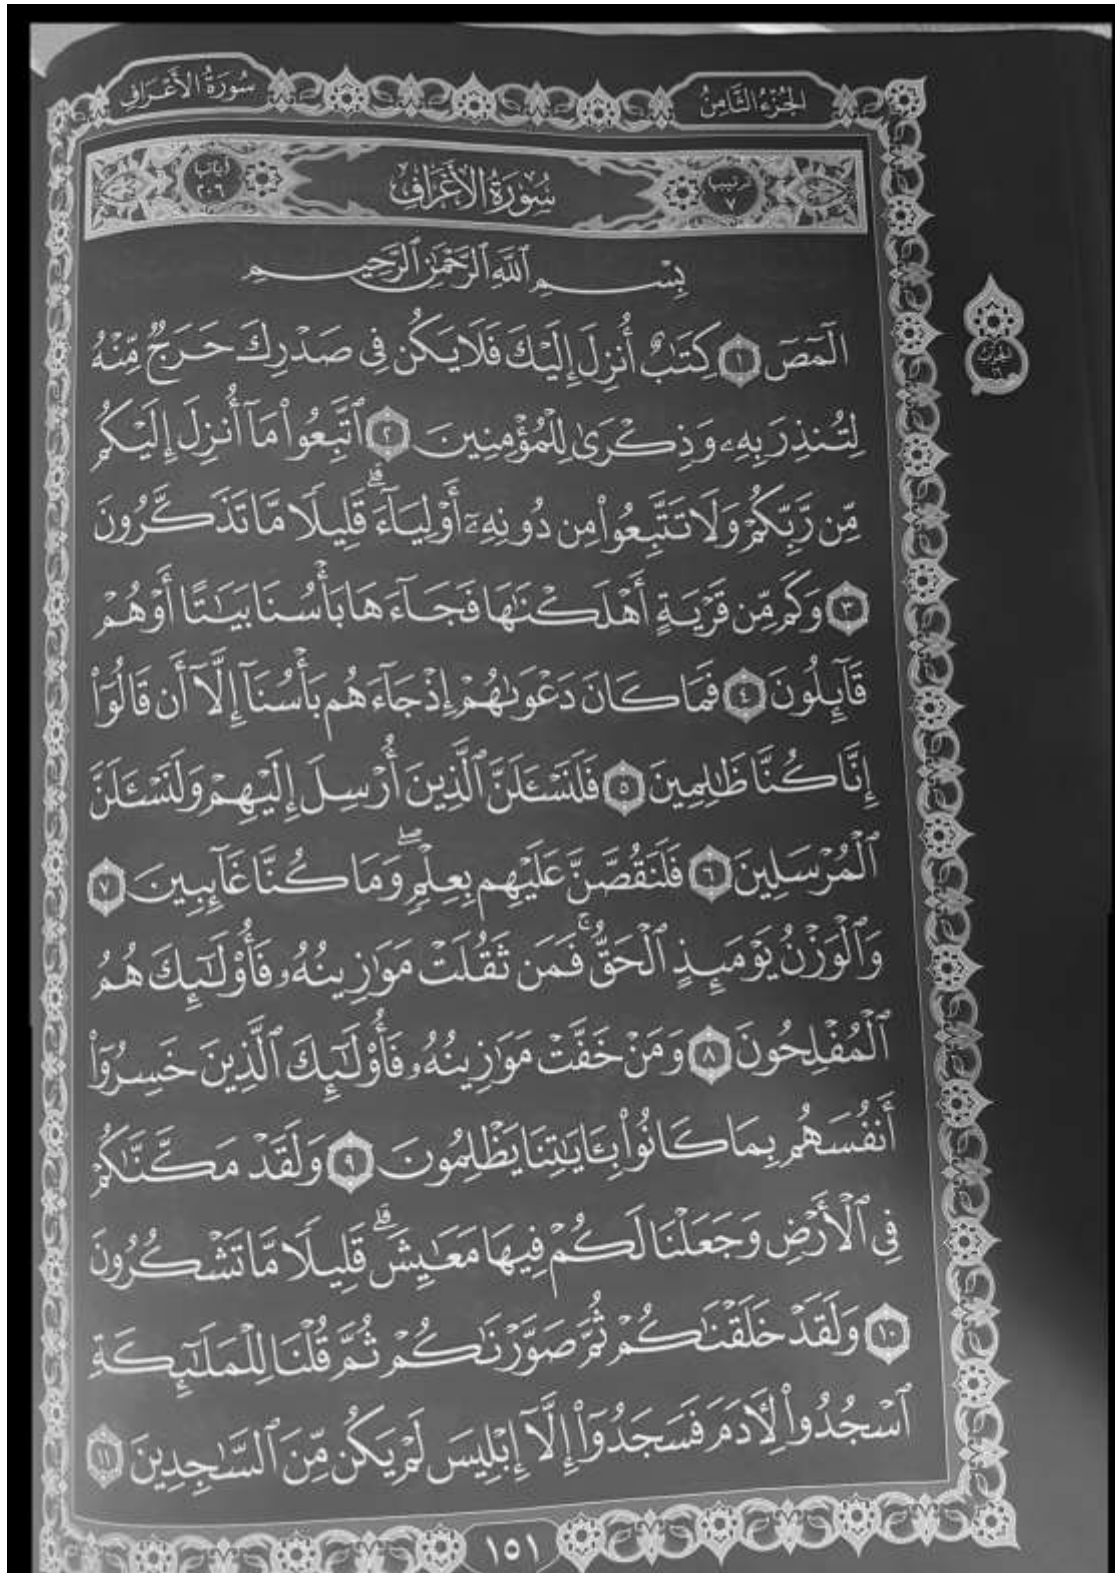 الجُزْءُ الثَّامِنُ
سُورَةُ الأَعْرَافِ
ترتيبها ٧
سُورَةُ الأَعْرَافِ
آياتها ٢٠٦
بِسْمِ ٱللَّهِ ٱلرَّحْمَٰنِ ٱلرَّحِيمِ
الٓمٓصٓ ١ كِتَٰبٌ أُنزِلَ إِلَيْكَ فَلَا يَكُن فِى صَدْرِكَ حَرَجٌ مِّنْهُ
لِتُنذِرَ بِهِۦ وَذِكْرَىٰ لِلْمُؤْمِنِينَ ٢ ٱتَّبِعُوا۟ مَآ أُنزِلَ إِلَيْكُم
مِّن رَّبِّكُمْ وَلَا تَتَّبِعُوا۟ مِن دُونِهِۦٓ أَوْلِيَآءَ ۗ قَلِيلًا مَّا تَذَكَّرُونَ
٣ وَكَم مِّن قَرْيَةٍ أَهْلَكْنَٰهَا فَجَآءَهَا بَأْسُنَا بَيَٰتًا أَوْ هُمْ
قَآئِلُونَ ٤ فَمَا كَانَ دَعْوَىٰهُمْ إِذْ جَآءَهُم بَأْسُنَآ إِلَّآ أَن قَالُوٓا۟
إِنَّا كُنَّا ظَٰلِمِينَ ٥ فَلَنَسْـَٔلَنَّ ٱلَّذِينَ أُرْسِلَ إِلَيْهِمْ وَلَنَسْـَٔلَنَّ
ٱلْمُرْسَلِينَ ٦ فَلَنَقُصَّنَّ عَلَيْهِم بِعِلْمٍ ۖ وَمَا كُنَّا غَآئِبِينَ ٧
وَٱلْوَزْنُ يَوْمَئِذٍ ٱلْحَقُّ ۚ فَمَن ثَقُلَتْ مَوَٰزِينُهُۥ فَأُو۟لَٰٓئِكَ هُمُ
ٱلْمُفْلِحُونَ ٨ وَمَنْ خَفَّتْ مَوَٰزِينُهُۥ فَأُو۟لَٰٓئِكَ ٱلَّذِينَ خَسِرُوٓا۟
أَنفُسَهُم بِمَا كَانُوا۟ بِـَٔايَٰتِنَا يَظْلِمُونَ ٩ وَلَقَدْ مَكَّنَّٰكُمْ
فِى ٱلْأَرْضِ وَجَعَلْنَا لَكُمْ فِيهَا مَعَٰيِشَ ۗ قَلِيلًا مَّا تَشْكُرُونَ
١٠ وَلَقَدْ خَلَقْنَٰكُمْ ثُمَّ صَوَّرْنَٰكُمْ ثُمَّ قُلْنَا لِلْمَلَٰٓئِكَةِ
ٱسْجُدُوا۟ لِـَٔادَمَ فَسَجَدُوٓا۟ إِلَّآ إِبْلِيسَ لَمْ يَكُن مِّنَ ٱلسَّٰجِدِينَ ١١
١٥١